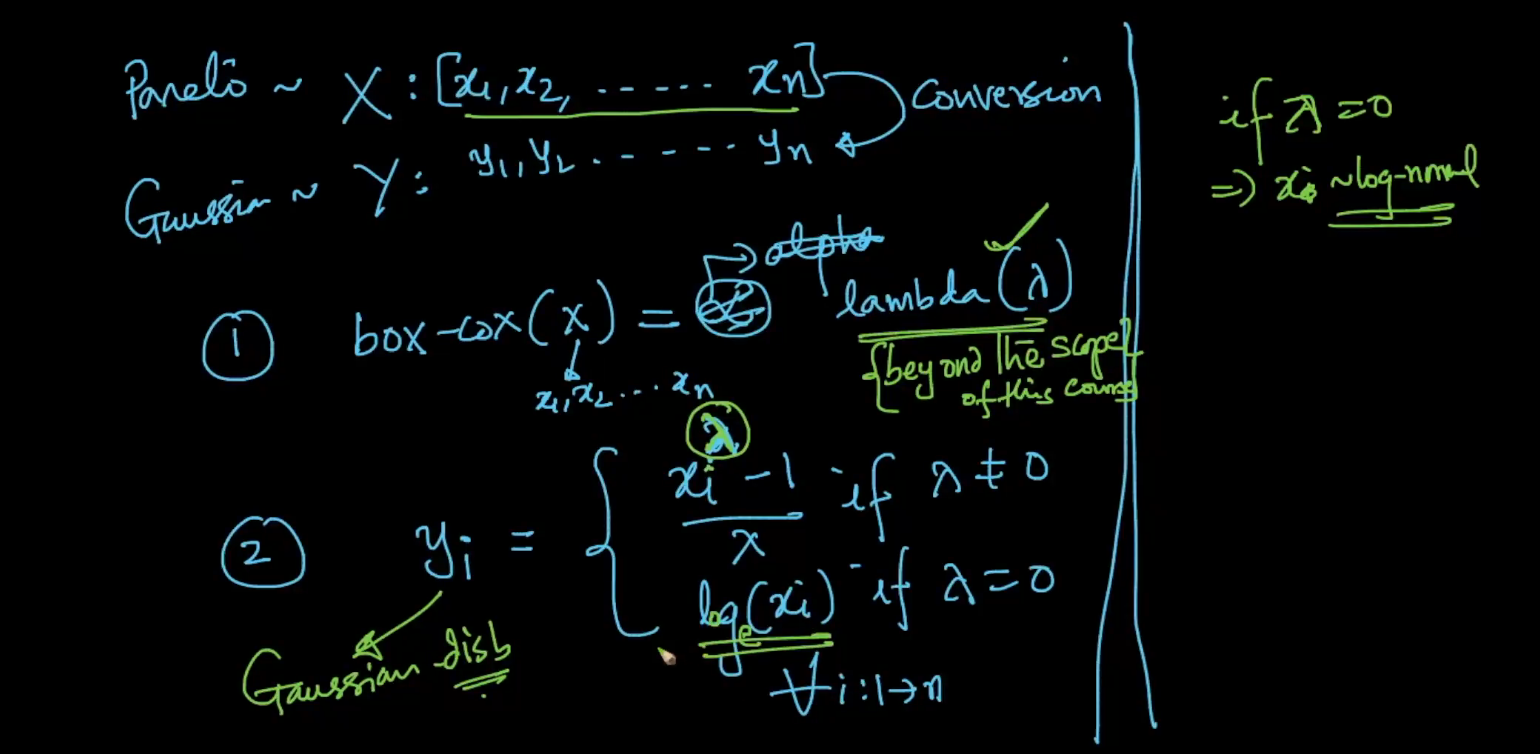 Pareto ~ X : [x₁, x₂, ...... xₙ]
Conversion
Gaussian ~ Y : y₁, y₂ ...... yₙ
① box-cox(x) = lambda (λ)
alpha
x₁, x₂ ... xₙ
{beyond the scope
of this course}
② yᵢ = { (xᵢ^λ - 1) / λ if λ ≠ 0
logₑ(xᵢ) if λ = 0
∀ i : 1 → n
Gaussian disb
if λ = 0
⇒ xᵢ ~ log-normal